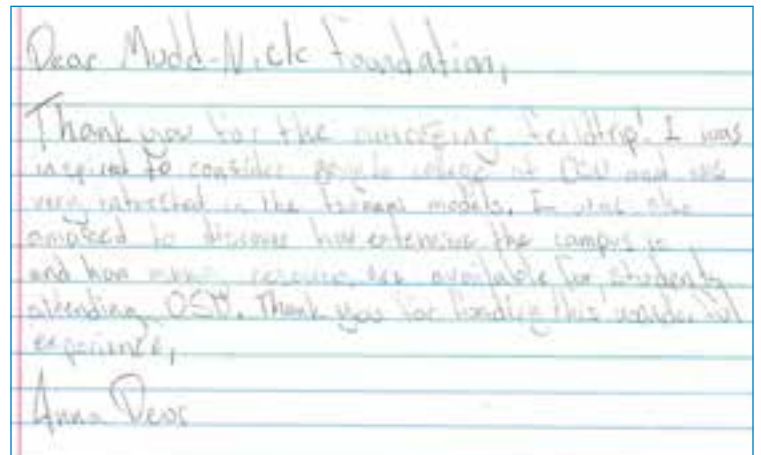 Dear Mudd-Nick Foundation,
Thank you for the feildtrip! I was
inspired to consider going to college at OSU and was
very intrested in the tsunami models. I was also
amazed to discover how extensive the campus is
and how many resources are available for students
attending OSU. Thank you for funding this wonderful
experience,
Anna